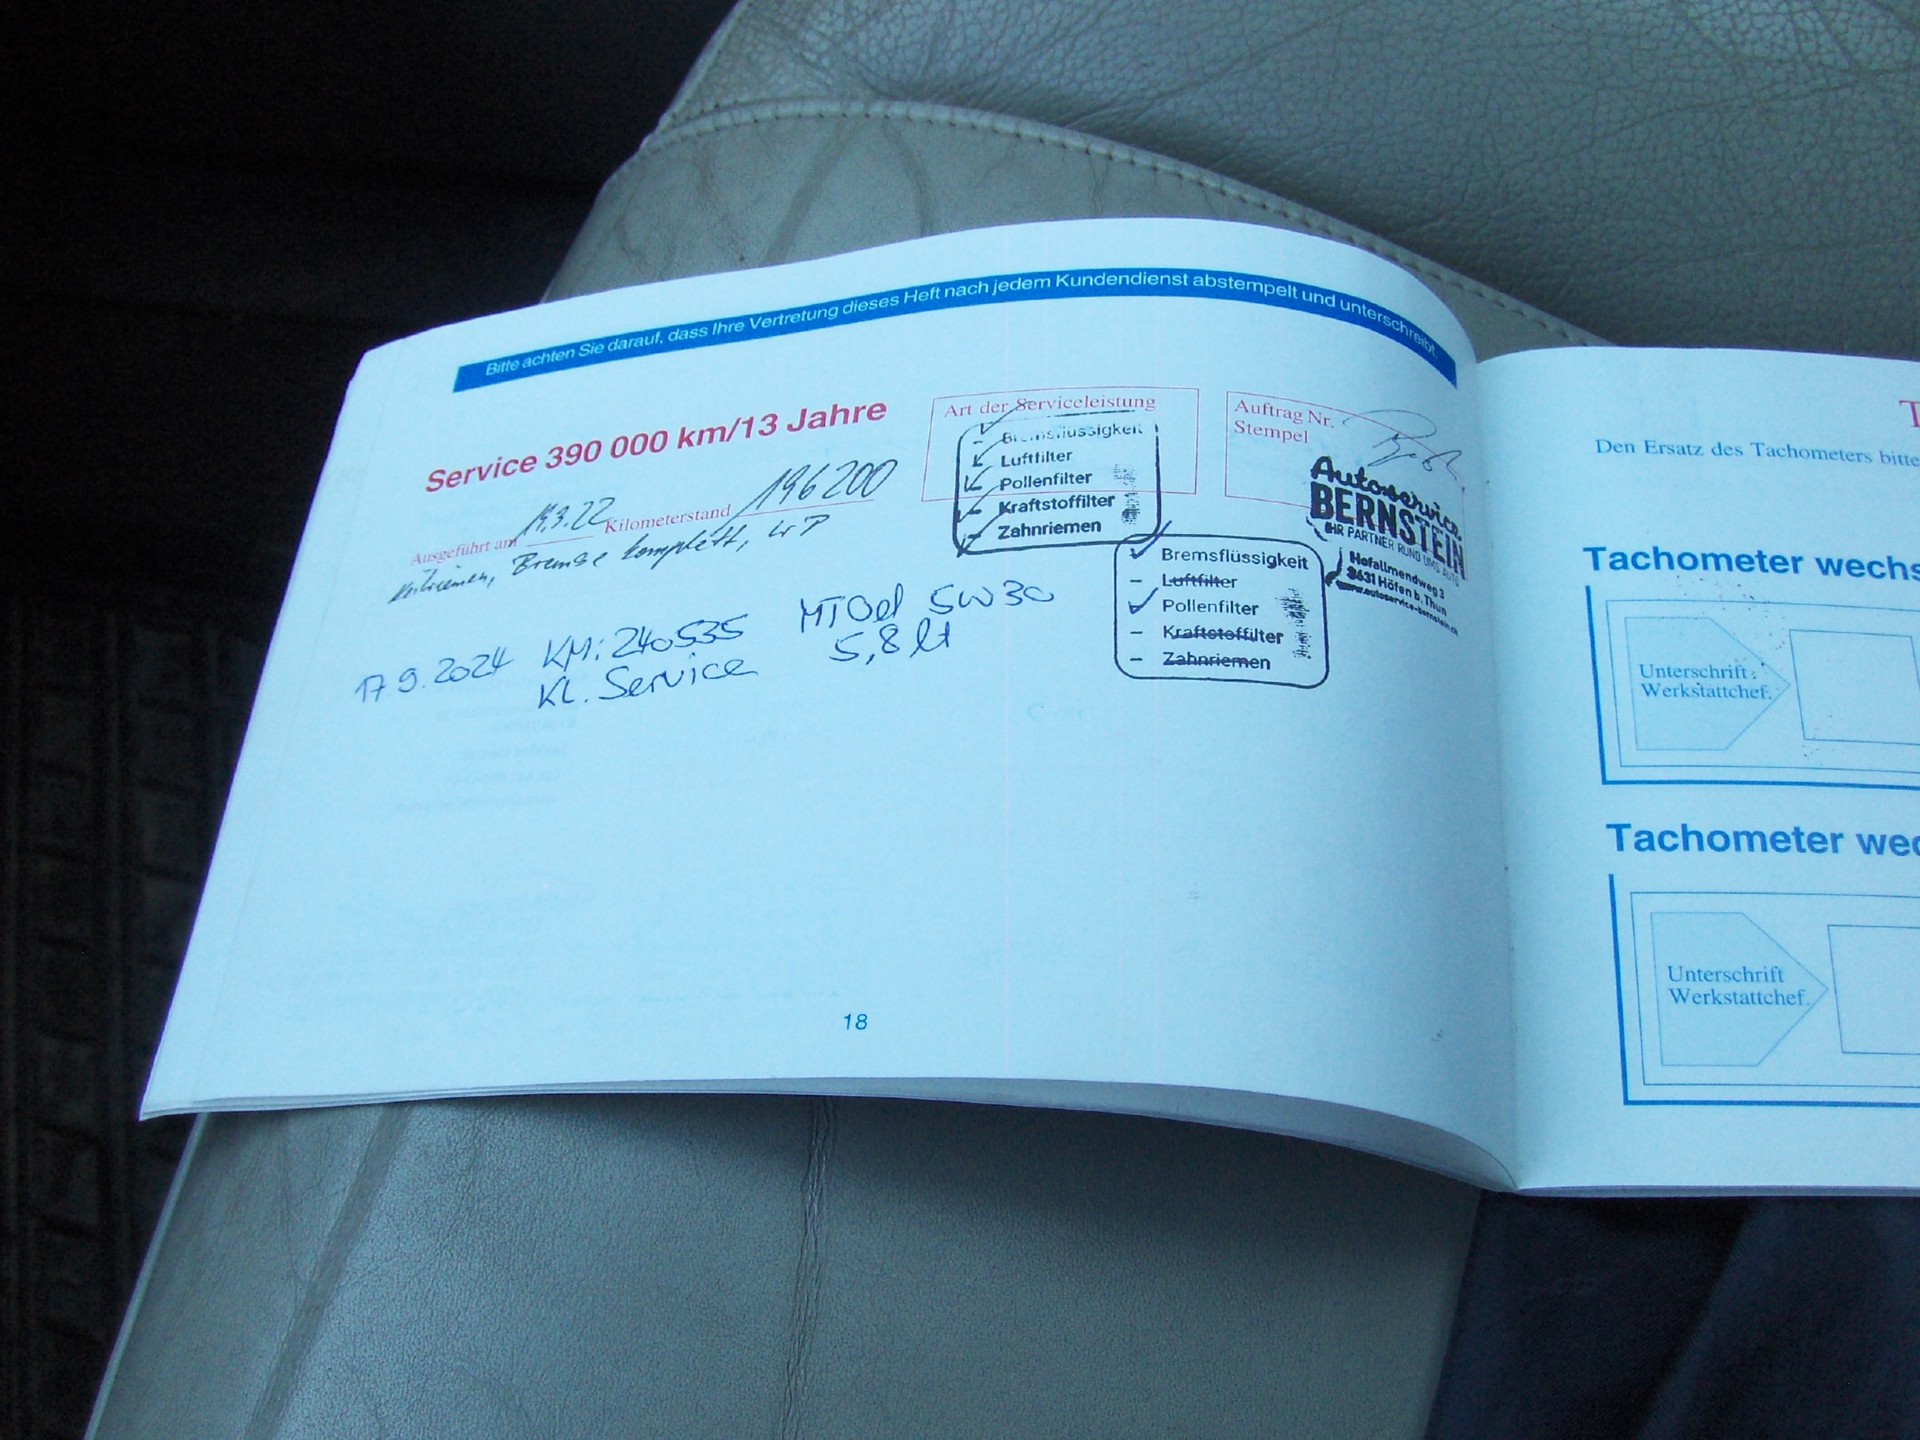 Bitte achten Sie darauf, dass Ihre Vertretung dieses Heft nach jedem Kundendienst abstempelt und unterschreibt.
Service 390 000 km/13 Jahre
Ausgeführt am 19.3.22 Kilometerstand 196200
Keilriemen, Bremse komplett, WP
17.9.2024 KM: 240535 MTOel 5W30
KL. Service 5,8 lt
Art der Serviceleistung
Bremsflüssigkeit
Luftfilter
Pollenfilter
Kraftstoffilter
Zahnriemen
Bremsflüssigkeit
Luftfilter
Pollenfilter
Kraftstoffilter
Zahnriemen
Auftrag Nr.
Stempel
Autoservice
BERNSTEIN
IHR PARTNER RUND UMS AUTO
Hofallmendweg 3
3631 Höfen b. Thun
www.autoservice-bernstein.ch
18
T
Den Ersatz des Tachometers bitte
Tachometer wechs
Unterschrift
Werkstattchef.
Tachometer wec
Unterschrift
Werkstattchef.